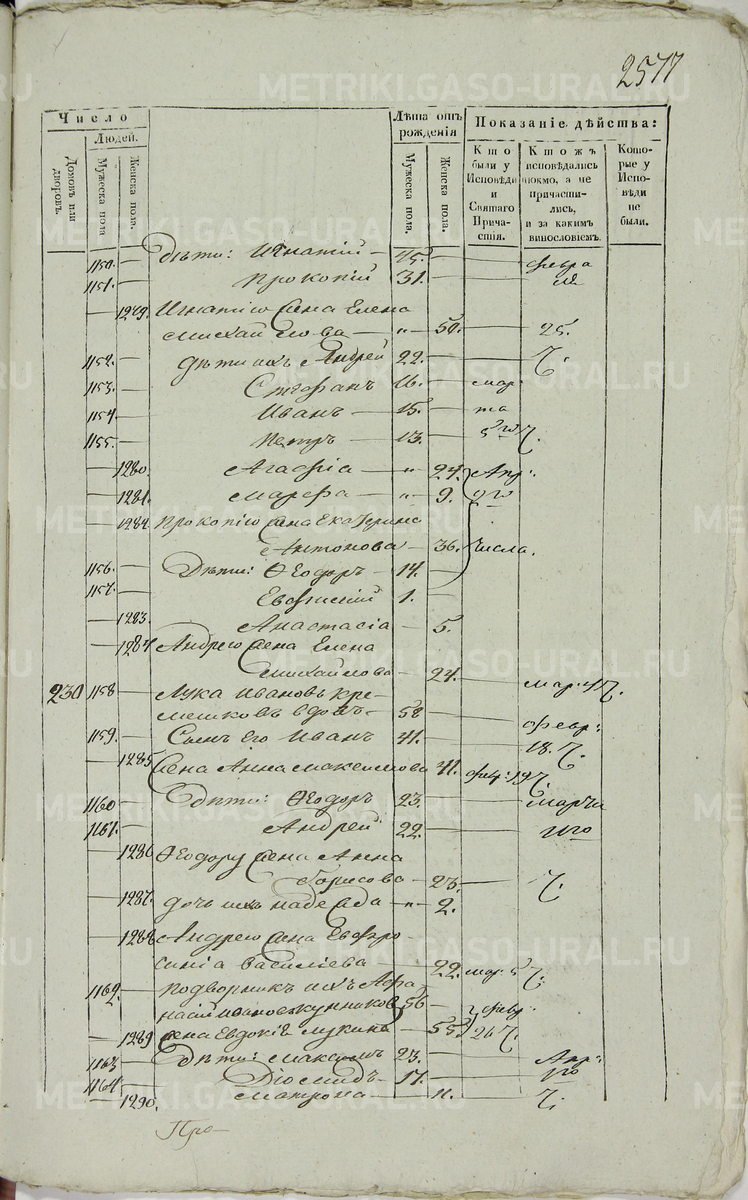 2577
Число
Людей.
Домовъ или дворовъ.
Мужеска пола
Женска пола.
Лѣта отъ рожденія
Мужеска пола.
Женска пола.
Показаніе дѣйства:
Кто были у Исповѣди и Святаго Причастія.
Кто жъ исповѣдались токмо, а не причастились, и за какимъ винословіемъ.
Которые у Исповѣди не были.
1150. Дѣти: Игнатій 45. февра
1151. Прокопій 31. ля
1279. Игнатію жена Елена
Михайлова " 50. 25.
1152. дѣти ихъ Андрей 22. Ч.
1153. Стефанъ 16. мар:
1154. Иванъ 15. та
1155. Петръ 13. 5го Ч.
1280. Агафіа " 24. Апр:
1281. Марфа " 9. 2го
1282. Прокопію жена Екатерина
Антонова 36. Числа.
1156. Дѣти: Ѳеодоръ 14.
1157. Евѳимій 1.
1283. Анастасіа 5.
1284. Андрею жена Елена
Михайлова 24.
230 1158 Лука Ивановъ Кре
мешковъ вдовъ 58 февр:
1159. Сынъ Его Иванъ 41. 18. Ч.
1285. Жена Анна Максимова 41. фев: 19 Ч.
1160 Дѣти: Ѳеодоръ 23. марта
1161. Андрей 22.
1286 Ѳеодору жена Анна
Борисова 23. Ч.
1287. дочь ихъ Надежда " 2.
1288 Андрею жена Евфро
синіа Василіева 22. мар: 5 Ч.
1162. Подворникъ ихъ Афа
насій Ивановъ 56 февр:
1289 жена Евдокіа Лукина 55 26 Ч.
1163 Дѣти: Максимъ 23. Апр:
1164. Діомидъ 17.
1290. Матрона 11. Ч.
Про
METRIKI.GASO-URAL.RU